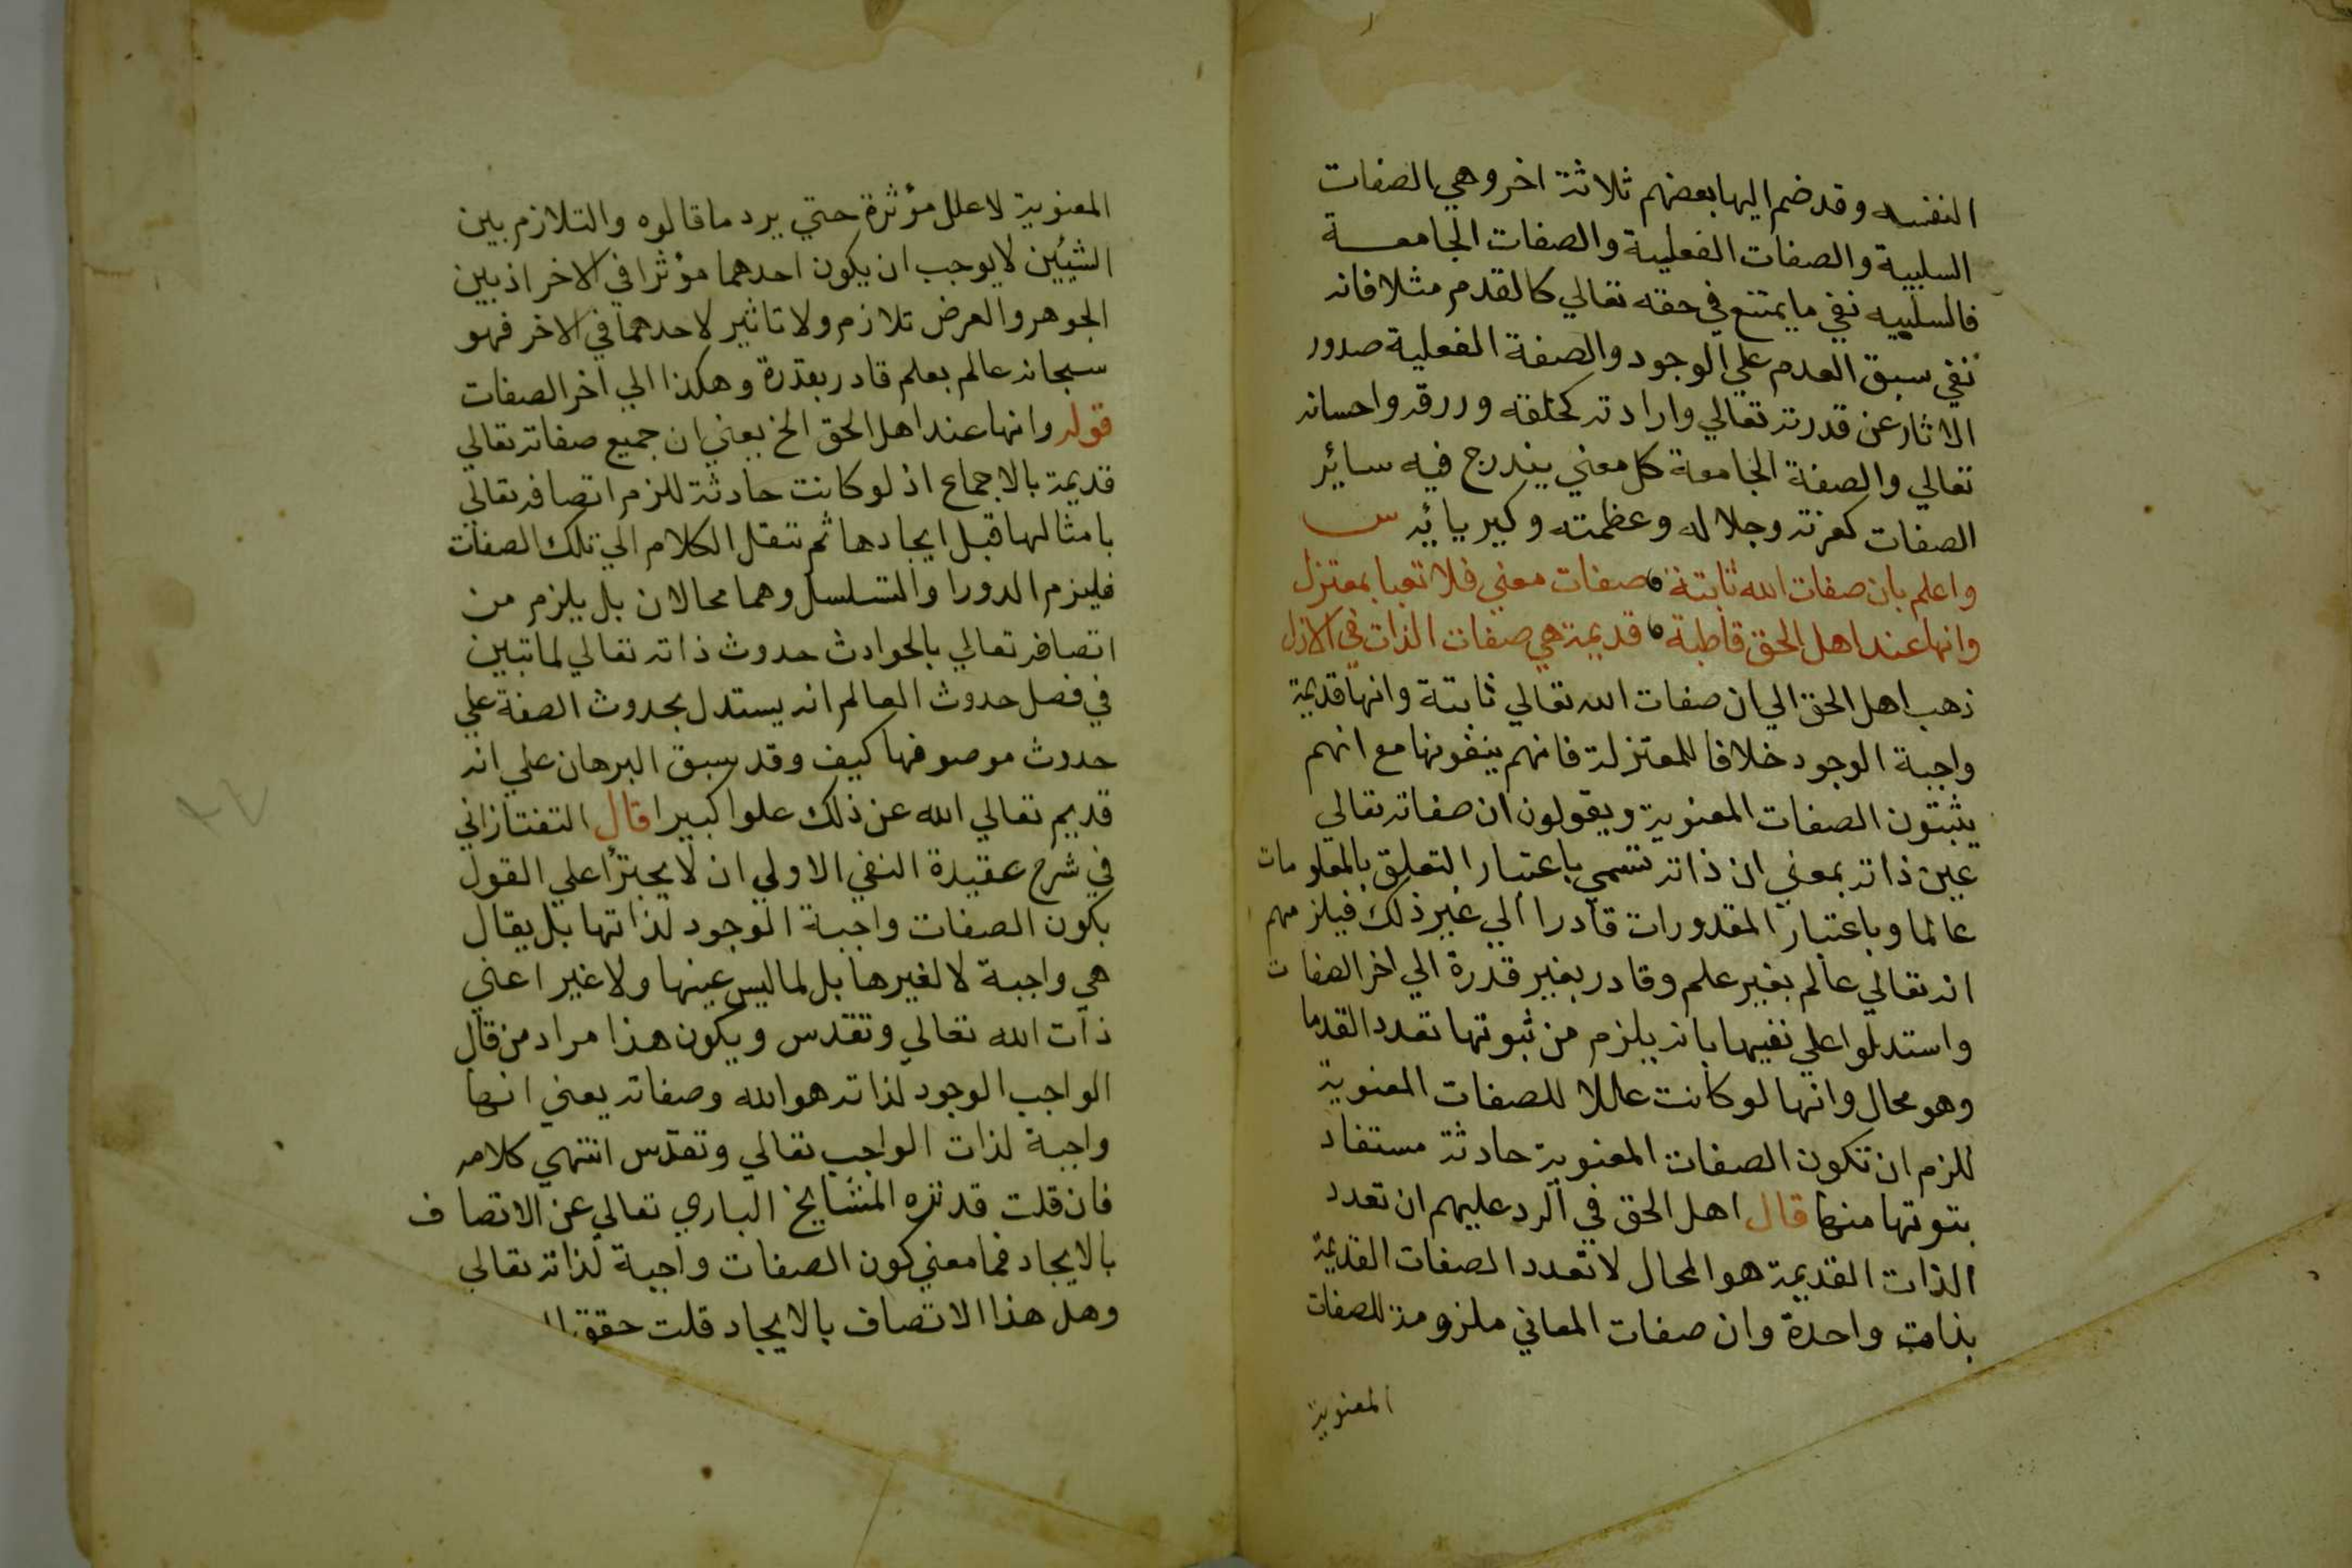 النفسيه وقد ضم اليها بعضهم ثلاثة اخر وهي الصفات
السلبية والصفات الفعلية والصفات الجامعـــة
فالسلبيه نفي ما يمتنع في حقه تعالي كالقدم مثلا فانه
نفي سبق العدم علي الوجود والصفة الفعلية صدور
الاثار عن قدرته تعالي وارادته كخلقه ورزقه واحسانه
تعالي والصفة الجامعة كل معني يندرج فيه سائر
الصفات كعزته وجلاله وعظمته وكبريائه س
واعلم بان صفات الله ثابتة صفات معني فلا تعبا بمعتزل
وانها عند اهل الحق قاطبة قديمة هي صفات الذات في الازل
ذهب اهل الحق الي ان صفات الله تعالي ثابتة وانها قديمة
واجبة الوجود خلافا للمعتزلة فانهم ينفونها مع انهم
يثبتون الصفات المعنوية ويقولون ان صفاته تعالي
عين ذاته بمعني ان ذاته تسمي باعتبار التعلق بالمعلومات
عالما وباعتبار المقدورات قادرا الي غير ذلك فيلزمهم
انه تعالي عالم بغير علم وقادر بغير قدرة الي اخر الصفات
واستدلوا علي نفيها بانه يلزم من ثبوتها تعدد القدما
وهو محال وانها لو كانت عللا للصفات المعنوية
للزم ان تكون الصفات المعنوية حادثة مستفاد
بتوتها منها قال اهل الحق في الرد عليهم ان تعدد
الذات القديمة هو المحال لا تعدد الصفات القديمة
بذات واحدة وان صفات المعاني ملزومة للصفات
المعنوية
المعنوية لا علل مؤثرة حتي يرد ما قالوه والتلازم بين
الشيئين لا يوجب ان يكون احدهما مؤثرا في الاخر اذ بين
الجوهر والعرض تلازم ولا تاثير لاحدهما في الاخر فهو
سبحانه عالم بعلم قادر بقدرة وهكذا الي اخر الصفات
قوله وانها عند اهل الحق الخ يعني ان جميع صفاته تعالي
قديمة بالاجماع اذ لو كانت حادثة للزم اتصافه تعالي
بامثالها قبل ايجادها ثم تنقل الكلام الي تلك الصفات
فليزم الدور او التسلسل وهما محالان بل يلزم من
اتصافه تعالي بالحوادث حدوث ذاته تعالي لما تبين
في فصل حدوث العالم انه يستدل بحدوث الصفة علي
حدوث موصوفها كيف وقد سبق البرهان علي انه
قديم تعالي الله عن ذلك علوا كبيرا قال التفتازاني
في شرح عقيدة النفي الاولي ان لا يجترأ علي القول
بكون الصفات واجبة الوجود لذاتها بل يقال
هي واجبة لا لغيرها بل لما ليس عينها ولا غير اعني
ذات الله تعالي وتقدس ويكون هذا مراد من قال
الواجب الوجود لذاته هو الله وصفاته يعني انها
واجبة لذات الواجب تعالي وتقدس انتهي كلامه
فان قلت قد نزه المشايخ الباري تعالي عن الاتصاف
بالايجاد فما معني كون الصفات واجبة لذاته تعالي
وهل هذا الا تصاف بالايجاد قلت حقق